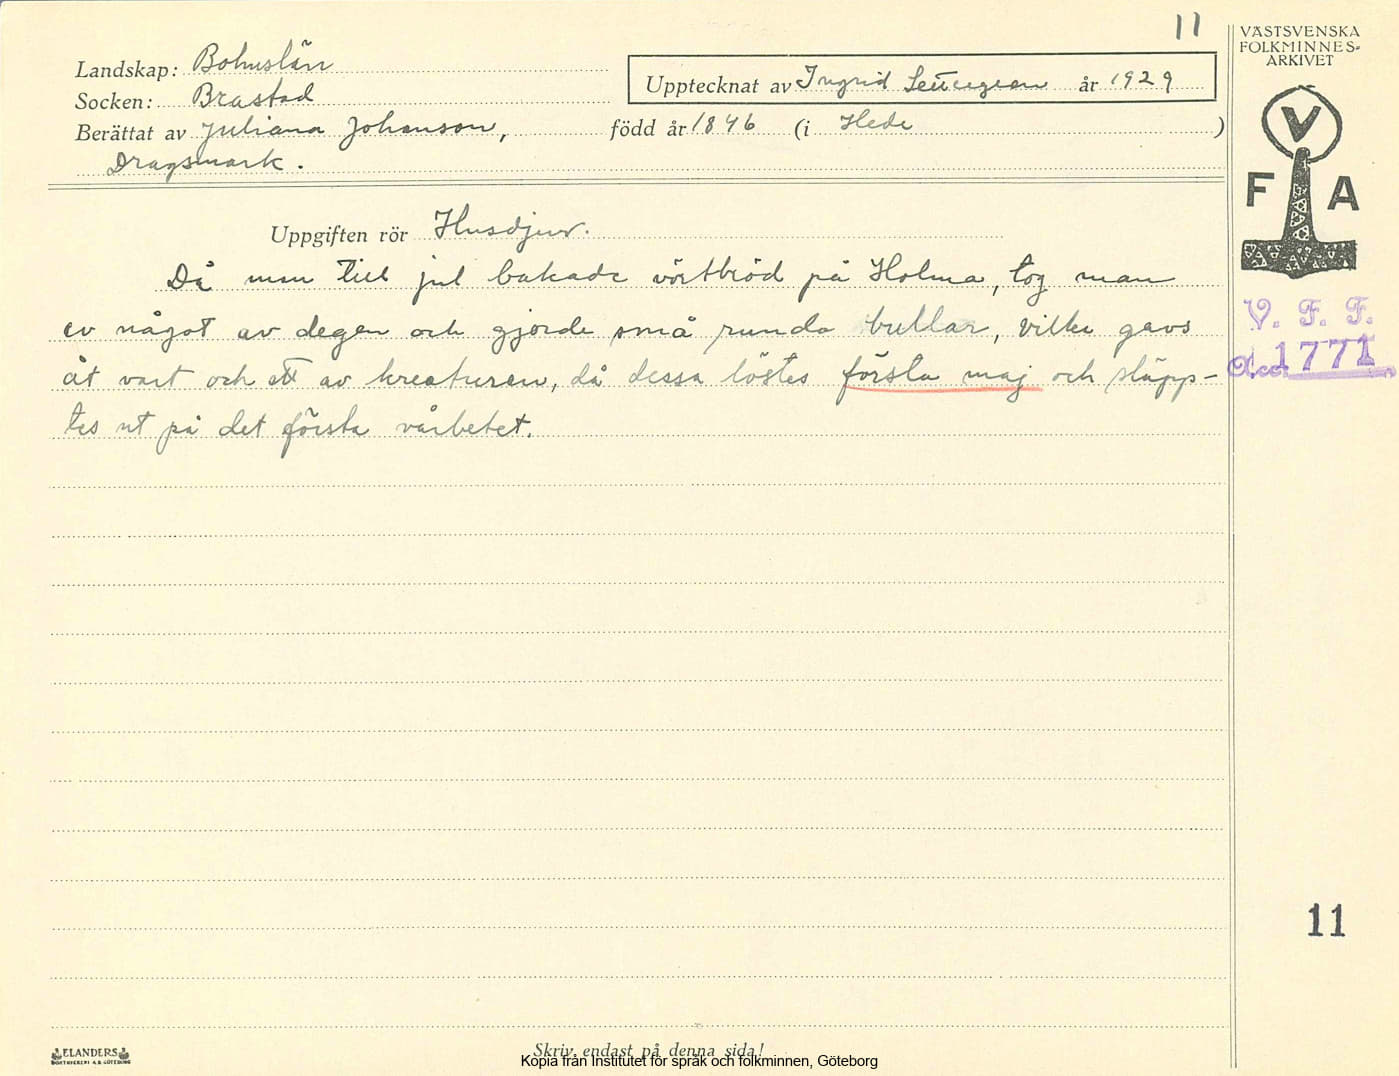 11
VÄSTSVENSKA
FOLKMINNES-
ARKIVET
Landskap: Bohuslän
Upptecknat av Ingrid år 1929
Socken: Brastad
Berättat av Juliana Johanson, född år 1846 (i Hede )
Dragsmark.
V
F A
Uppgiften rör Husdjur.
Då man till jul bakade vörtbröd på Holma, tog man
av något av degen och gjorde små runda bullar, vilka gavs
åt vart och ett av kreaturen, då dessa löstes första maj och släpp-
tes ut på det första vårbetet.
V. F. F.
Acc. 1771
11
ELANDERS
BOKTRYCKERI A.B. GÖTEBORG
Skriv endast på denna sida!
Kopia från Institutet för språk och folkminnen, Göteborg